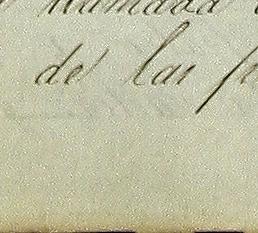 llamada
de las